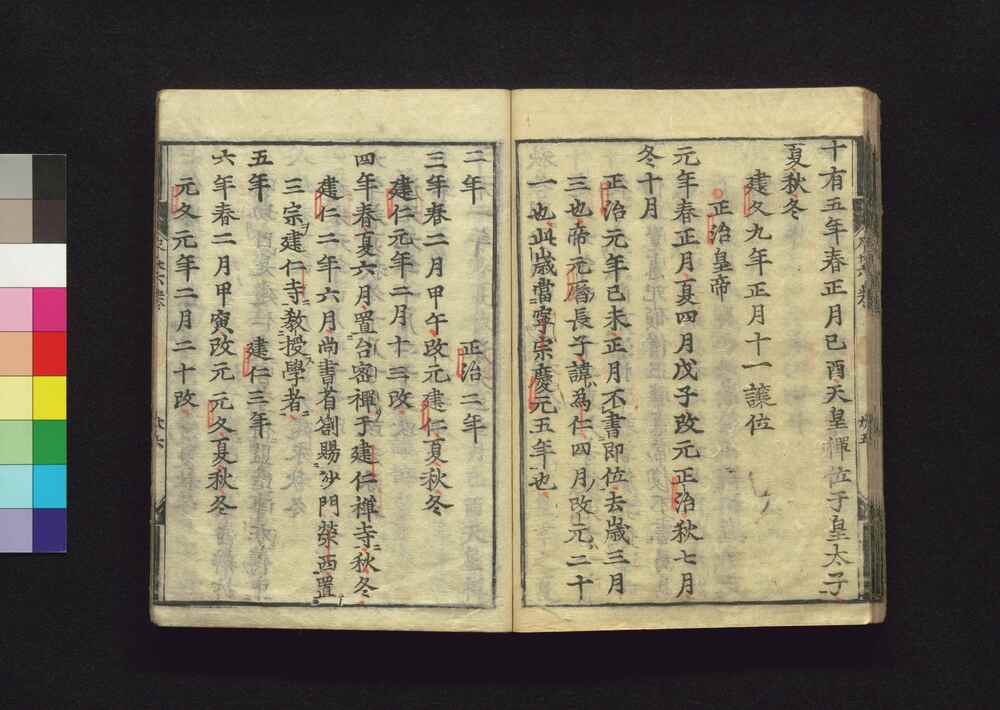 十有五年春正月己酉天皇禪位于皇太子
夏秋冬
建久九年正月十一讓位
正治皇帝
元年春正月夏四月戊子改元正治秋七月
冬十月
正治元年己未正月不書即位去歲三月
三也帝元曆長子諱為仁四月改元二十
一也此歲當寧宗慶元五年也
二年 正治二年
三年春二月甲午改元建仁夏秋冬
建仁元年二月十三改
四年春夏六月置台密禪于建仁禅寺秋冬
建仁二年六月尚書省劄賜沙門榮西置
三宗建仁寺教授學者
五年 建仁三年
六年春二月甲寅改元元久夏秋冬
元久元年二月二十改